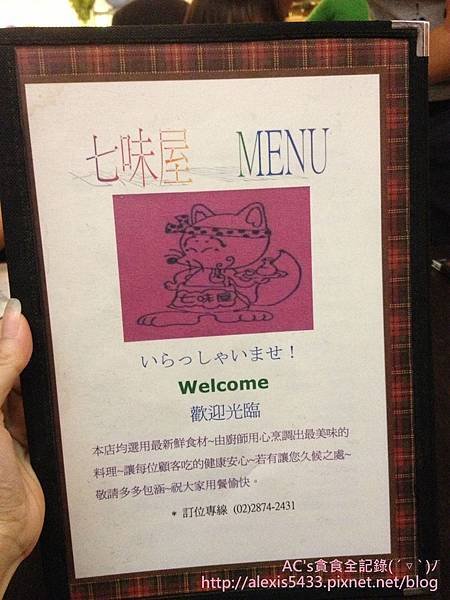 七味屋 MENU
七味屋
いらっしゃいませ！
Welcome
歡迎光臨
本店均選用最新鮮食材~由廚師用心烹調出最美味的
料理~讓每位顧客吃的健康安心~若有讓您久候之處~
敬請多多包涵~祝大家用餐愉快。
* 訂位專線 (02)2874-2431
AC's貪食全記錄(´▽`)ﾉ
http://alexis5433.pixnet.net/blog